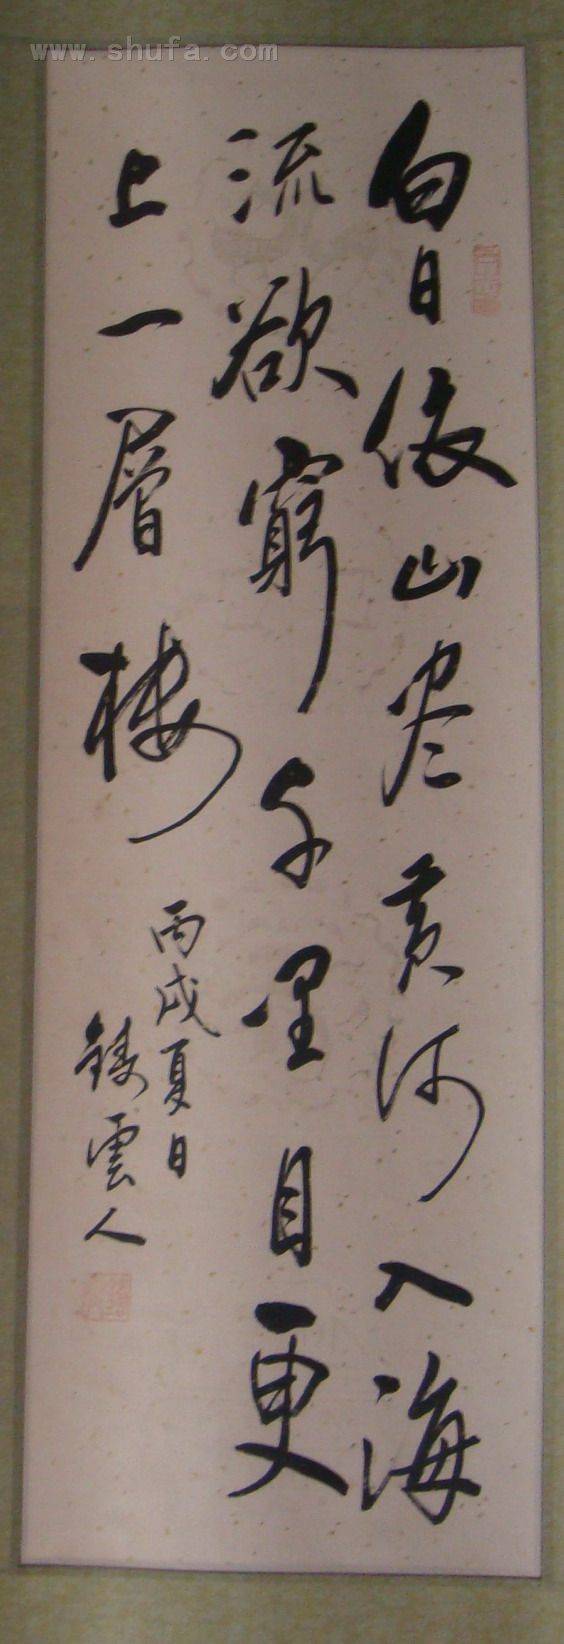 www.shufa.com
白日依山尽黄河入海
流欲窮千里目更
上一層楼
丙戌夏日
鋳雲人